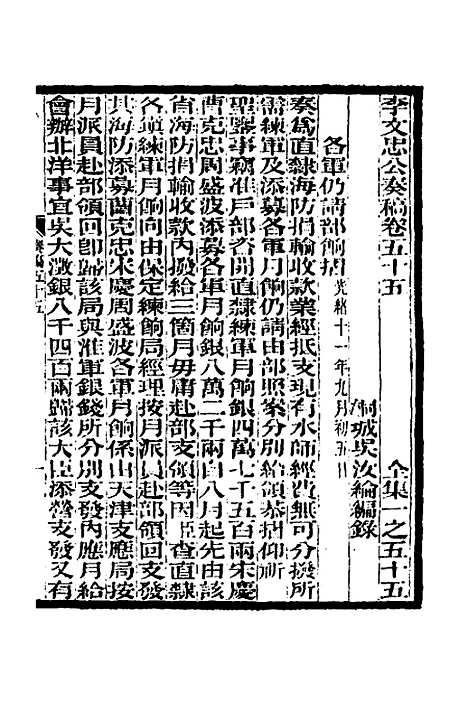 李文忠公奏稿卷五十五　全集一之五十五
桐城吳汝綸編錄
各軍仍請部餉摺　光緒十一年九月初五日
奏爲直隸海防捐輸收款業經抵支現有水師經費無可分撥所
需練軍及添募各軍月餉仍請由部照案分別給領恭摺仰祈
聖鑒事竊准戶部咨開直隸練軍月餉銀四萬七千五百兩宋慶
曹克忠周盛波添募各軍月餉銀八萬二千兩自八月起先由該
省海防捐輸收款內撥給三箇月毋庸赴部支領等因臣查直隸
各項練軍月餉向由保定練餉局經理按月派員赴部領回支發
其海防添募曹克忠宋慶周盛波各軍月餉係由天津支應局按
月派員赴部領回卽歸該局與淮軍銀錢所分別支發內應月給
會辦北洋事宜吳大澂銀八千四百兩歸該大臣添營支發又有
奏稿五十五